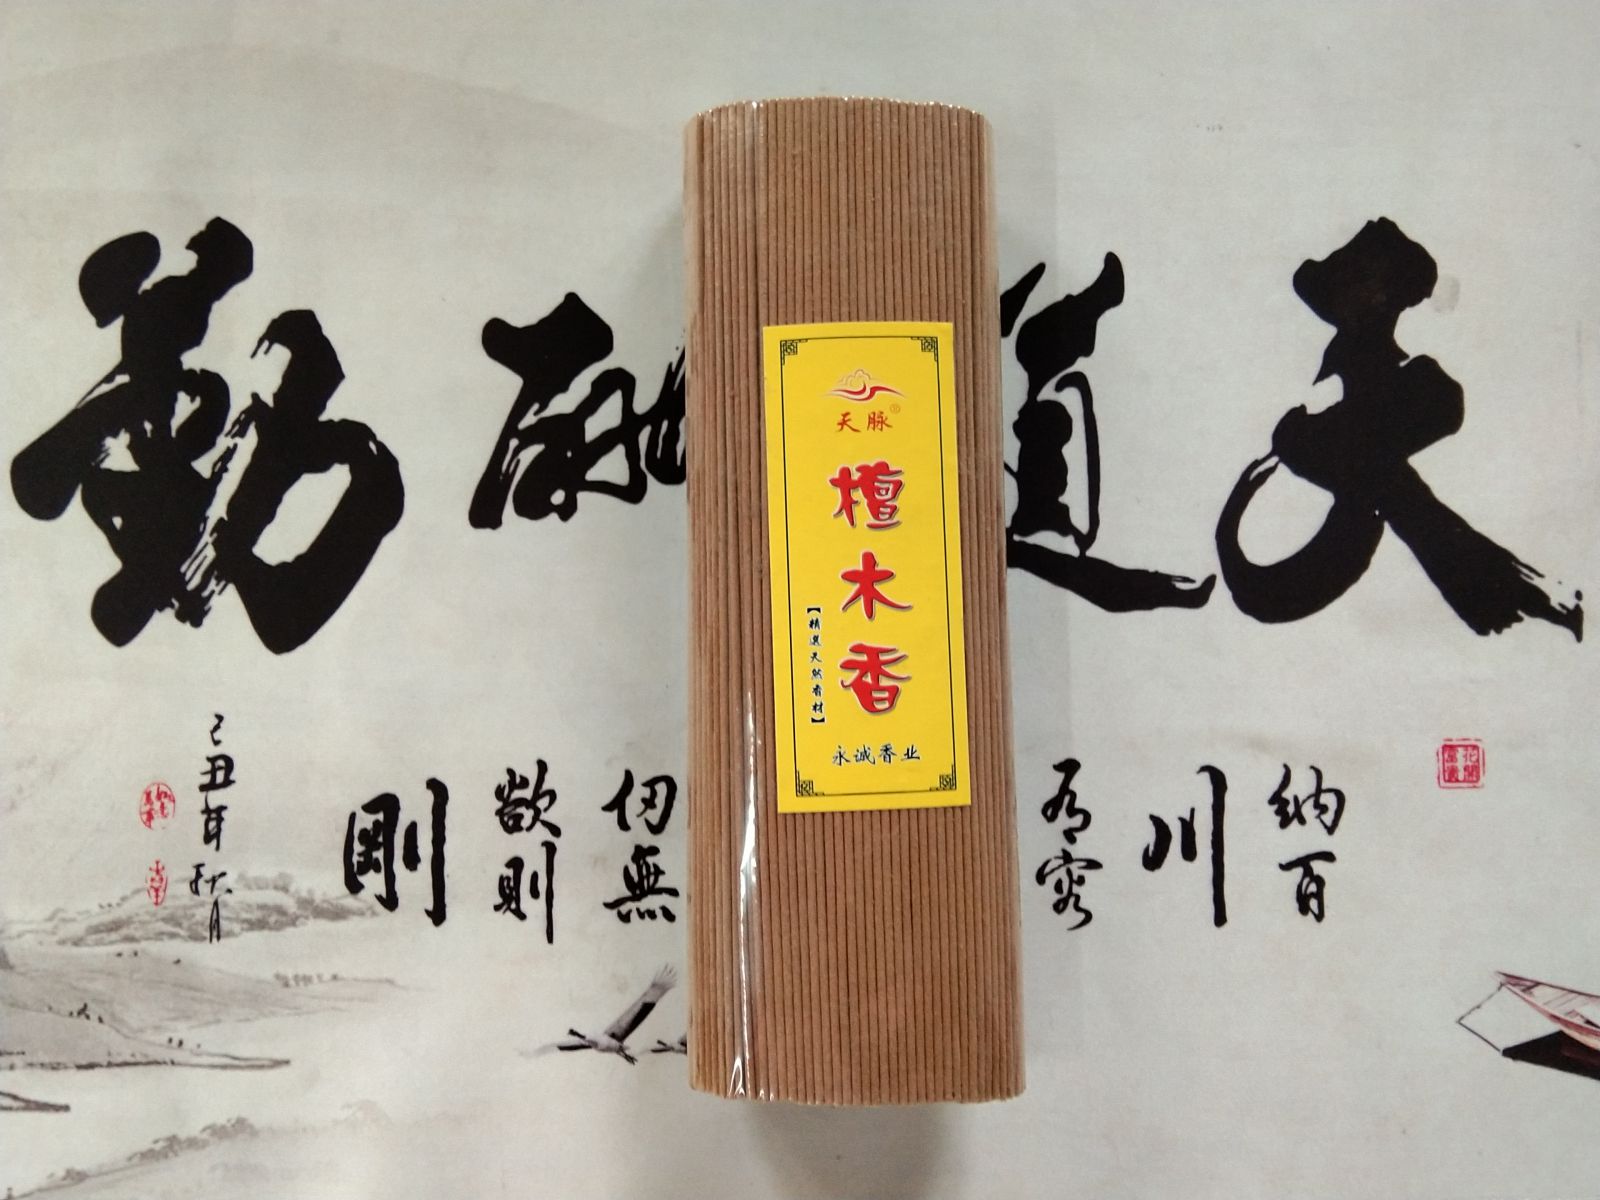 天道酬勤
天脉®
檀木香
【精選天然香材】
永诚香业
納百
川
有容
仞無
欲則
剛
己丑年秋月